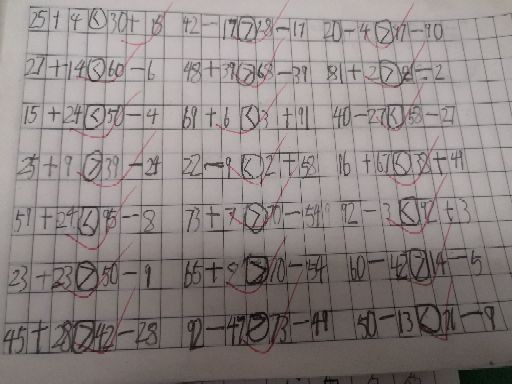 25+4<30+15 42-17>28-17 20-4>17-10
27+14<60-6 48+39>68-39 81+2>81-2
15+24<50-4 69+6<31+91 40-27<50-27
25+9>39-29 22-9<21+58 16+67<38+49
51+24<95-8 73+7>70-54 92-3<92+3
23+23>50-9 65+8>70-54 60-42>14-5
45+28>42-28 92-47>73-49 50-13<76-9